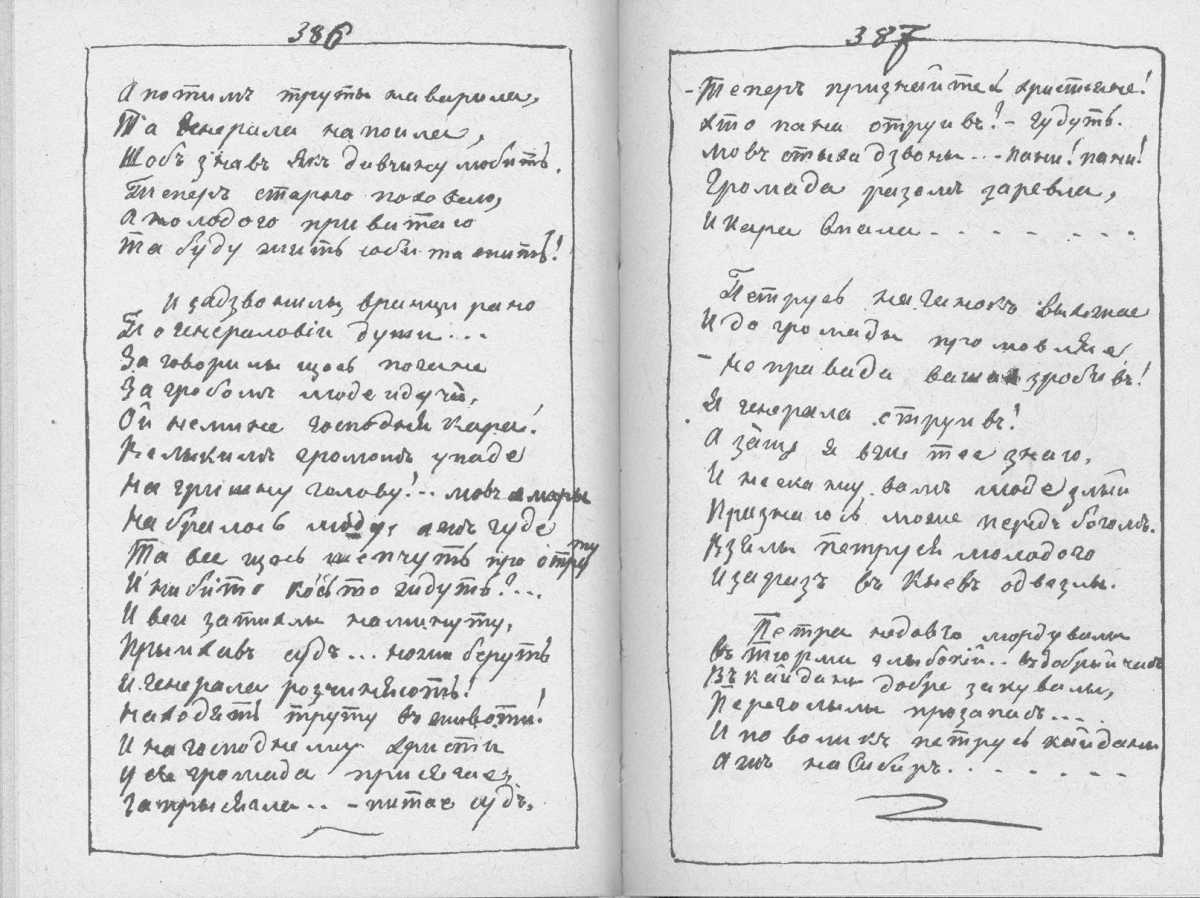 386
А потимъ труты наварила,
Та Генерала напоила,
Щобъ знавъ якъ дивчину любить.
Теперъ старого поховаю,
А молодого привитаю
Та буду жить люби та жить!
И задзвонылы вранци рано
По генераловій души...
Заговорилы щось погане
За гробомъ люде идучи,
Ой немине господня кара!
Велыкимъ громомъ упаде
На гришну голову!.. мовъ хмары
Набралось люду, ажъ гуде
Та все щось шепчуть про отруту
И нибито когось то
И вси затихлы на минуту,
Прыихавъ судъ... ножи беруть
И Генерала розчиняють!
Находять труту въ животи!
И на господнему христи
Уся громада присягає,
Заприсягала.. – питає судъ,
387
– Теперъ признайтесь христіяне!
Хто пана отруивъ? – Гудуть.
Мовъ стыха дзвоны... – пани! пани!
Громада разомъ заревла,
И кара впала. . . . . . . .
Петрусь на ганокъ выхожає
И до громады промовляє
– Неправда ваша зробивъ!
Я генерала струивъ!
А защо я вже тее знаю,
И нескажу вамъ люде злыи
Признаюсь може передъ богомъ.
Взялы петруся молодого
И заразъ въ Кыевъ одвезлы.
Петра недовго мордувалы
Въ тюрми глыбокій.. въ добрый часъ
Въ кайданы добре закувалы,
Переголылы прозапасъ....
И поволикъ петрусь кайданы
Ажъ на Сибиръ. . . . . . . .